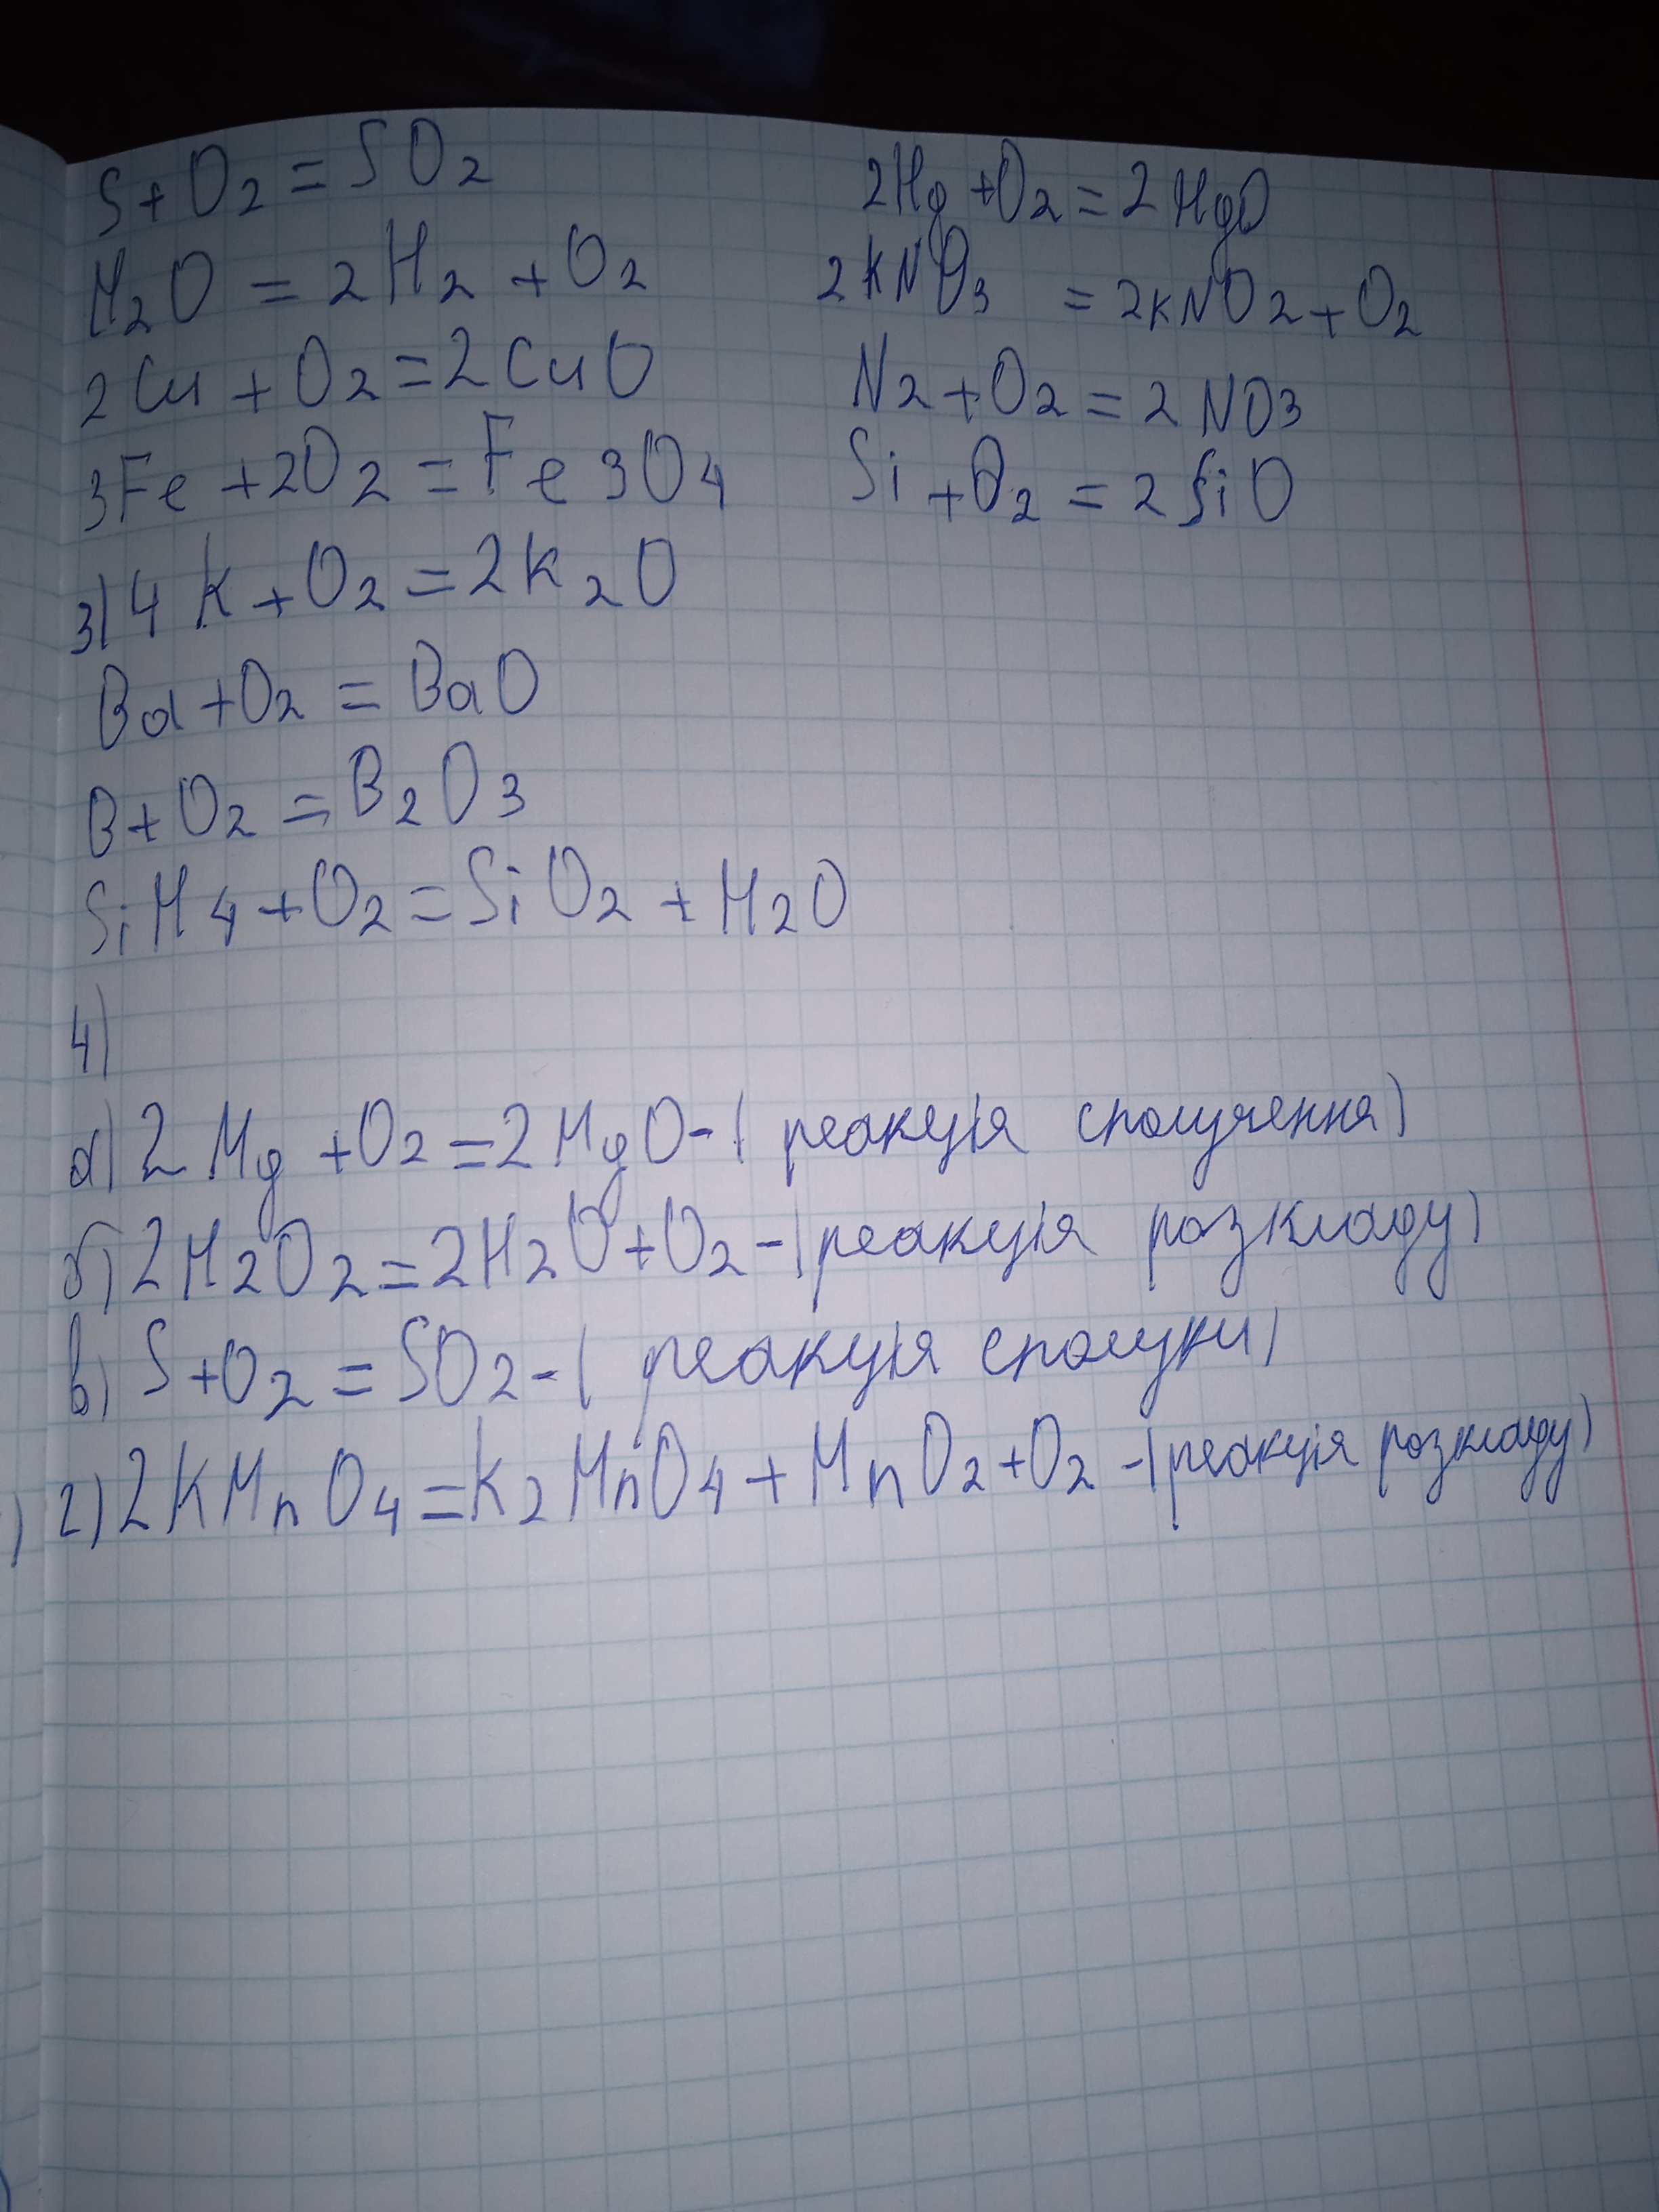 S + O2 = SO2
H2O = 2H2 + O2
2Cu + O2 = 2CuO
3Fe + 2O2 = Fe3O4
2Hg + O2 = 2HgO
2KNO3 = 2KNO2 + O2
N2 + O2 = 2NO3
Si + O2 = 2SiO
3) 4K + O2 = 2K2O
Ba + O2 = BaO
B + O2 = B2O3
SiH4 + O2 = SiO2 + H2O
4)
а) 2Mg + O2 = 2MgO - (реакція сполучення)
б) 2H2O2 = 2H2O + O2 - (реакція розкладу)
в) S + O2 = SO2 - (реакція сполуки)
г) 2KMnO4 = K2MnO4 + MnO2 + O2 - (реакція розкладу)